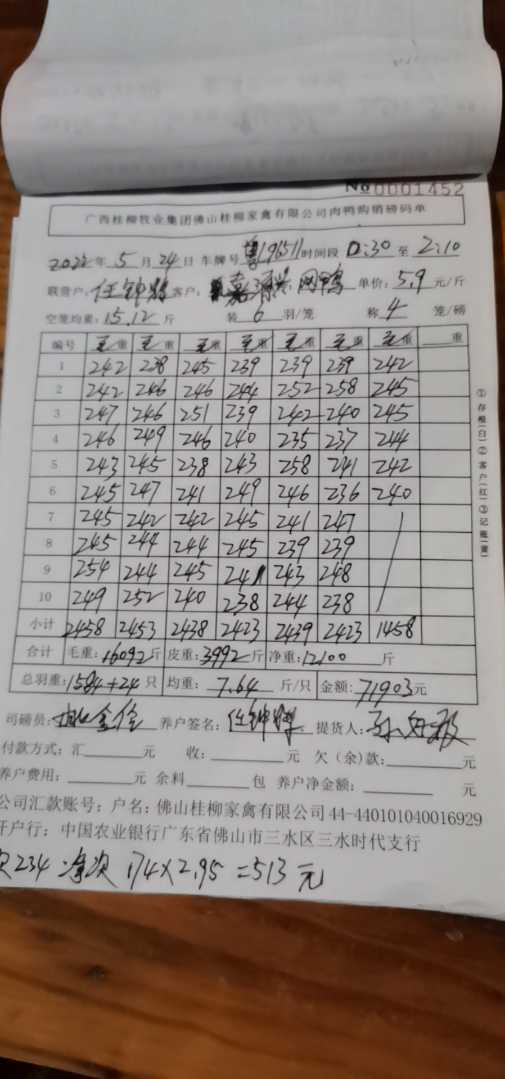 No 0001452
广西桂柳牧业集团佛山桂柳家禽有限公司肉鸭购销磅码单
2022年 5 月 24 日 车牌号 时间段 至 2:10
联营户: 客户: 网鸭 单价: 5.9 元/斤
空笼均重: 15.12 斤 装 6 羽/笼 称 4 笼/磅
编号 毛重 毛重 毛重 毛重 毛重 毛重 毛重 重
1 242 238 245 239 239 239 242
2 242 246 246 244 252 258 245
3 247 246 251 239 242 240 245
4 246 249 246 240 235 237 244
5 243 245 238 243 258 241 242
6 245 247 241 249 246 236 240
7 245 242 242 245 241 247
8 245 244 244 245 239 239
9 254 244 245 241 243 248
10 249 252 240 238 244 238
小计 2458 2453 2438 2423 2439 2423 1458
合计 毛重: 16092 斤 皮重: 3992 斤 净重: 12100 斤
总羽重: 1584+24 只 均重: 7.64 斤/只 金额: 71903 元
司磅员: 养户签名: 提货人:
付款方式: 汇 元 收: 元 欠(余)款: 元
养户费用: 元 余料 包 养户净金额: 元
公司汇款账号: 户名: 佛山桂柳家禽有限公司 44-440101040016929
开户行: 中国农业银行广东省佛山市三水区三水时代支行
次234 净次 174×2.95=513 元
①存根(白)②客户(红)③记账(黄)